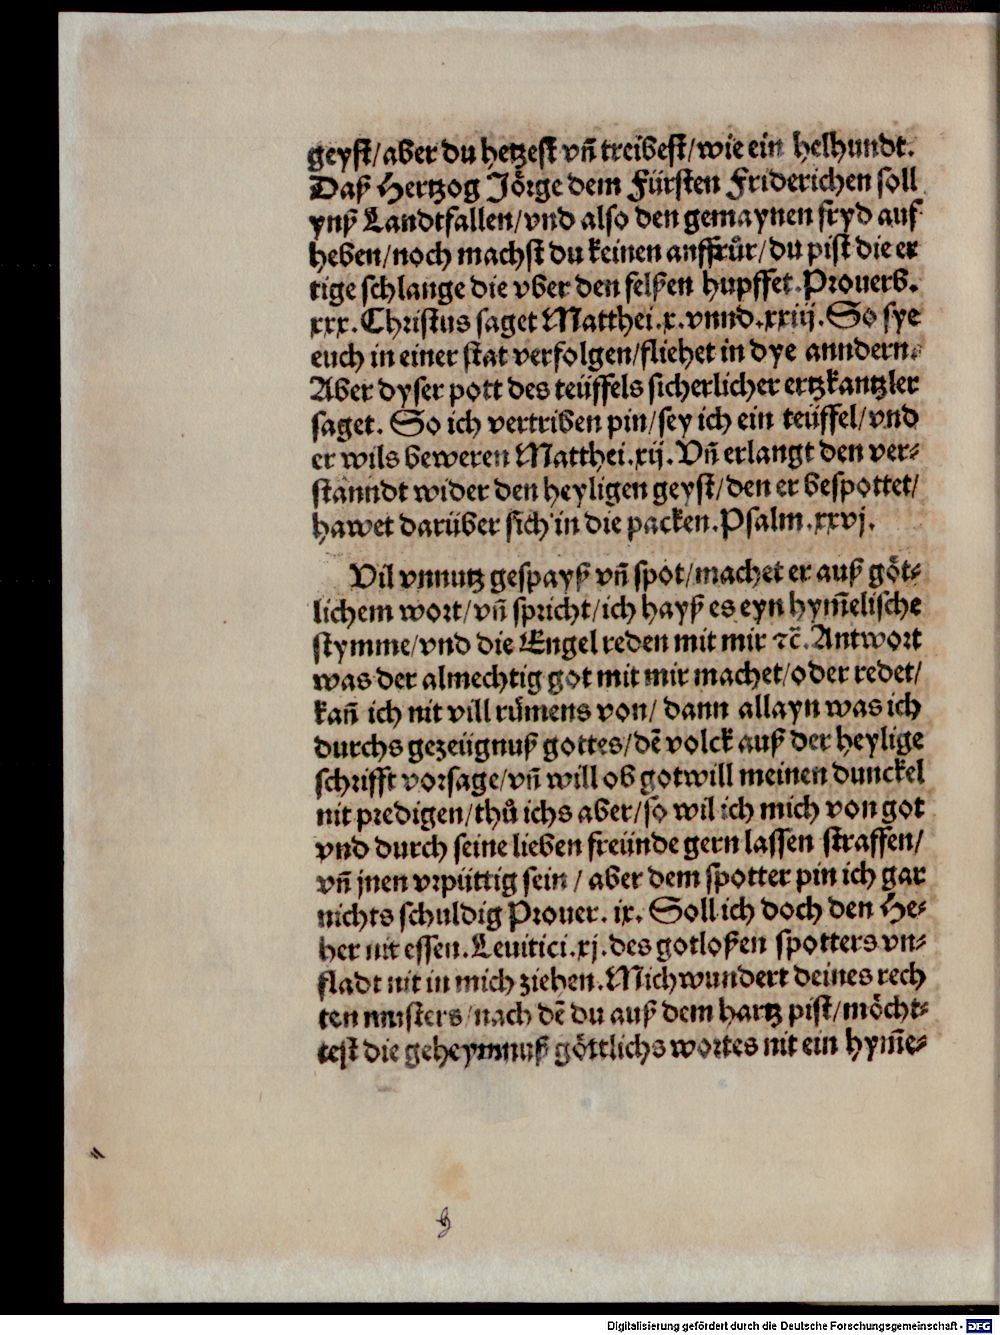 geyst/aber du hetzest vñ treibest/wie ein helhundt.
Daß Hertzog Jörge dem Fürsten Friderichen soll
ynß Landtfallen/vnd also den gemaynen fryd auf
heben/noch machst du keinen auffrůr/du pist die er
tige schlange die vber den felßen hupffet.Prouerb.
xxx.Christus saget Matthei.x.vnnd.xxiij.So sye
euch in einer stat verfolgen/fliehet in dye anndern.
Aber dyser pott des teüffels sicherlicher ertzkantzler
saget. So ich vertriben pin/sey ich ein teüffel/vnd
er wils beweren Matthei.xij.Vñ erlangt den ver⸗
stanndt wider den heyligen geyst/den er bespottet/
hawet darüber sich in die packen.Psalm.xxvj.
Vil vnnutz gespayß vñ spot/machet er auß göt⸗
lichem wort/vñ spricht/ich hayß es eyn hym̃elische
stymme/vnd die Engel reden mit mir ⁊c̃.Antwort
was der almechtig got mit mir machet/oder redet/
kañ ich nit vill růmens von/ dann allayn was ich
durchs gezeügnuß gottes/dẽ volck auß der heylige
schrifft vorsage/vñ will ob gotwill meinen dunckel
nit predigen/thů ichs aber/so wil ich mich von got
vnd durch seine lieben freünde gern lassen straffen/
vñ jnen vrpüttig sein / aber dem spotter pin ich gar
nichts schuldig Prouer. ix. Soll ich doch den He⸗
her nit essen.Leuitici.xj.des gotloßen spotters vn⸗
fladt nit in mich ziehen.Mich wundert deines rech
ten musters/nach dẽ du auß dem hartz pist/möcht⸗
test die geheymnuß göttlichs wortes nit ein hym̃e⸗
Digitalisierung gefördert durch die Deutsche Forschungsgemeinschaft - DFG